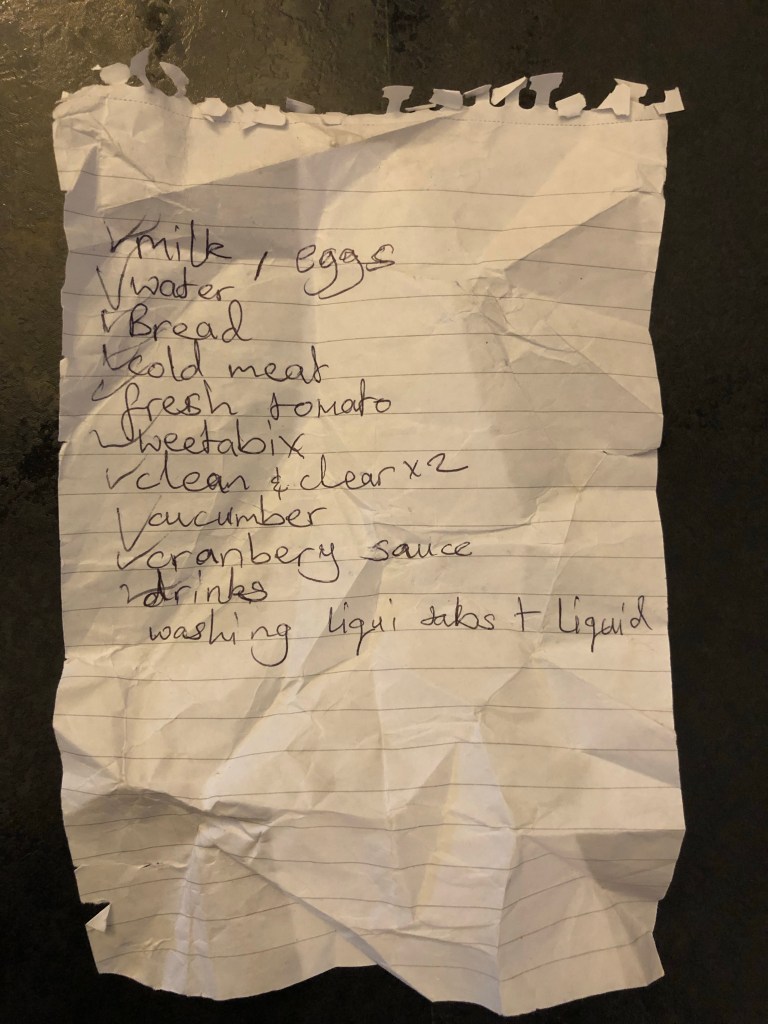 ✓milk, eggs
✓water
✓Bread
✓cold meat
✓fresh tomato
✓weetabix
✓clean & clear x2
✓cucumber
✓cranbery sauce
✓drinks
washing liqui tabs + liquid